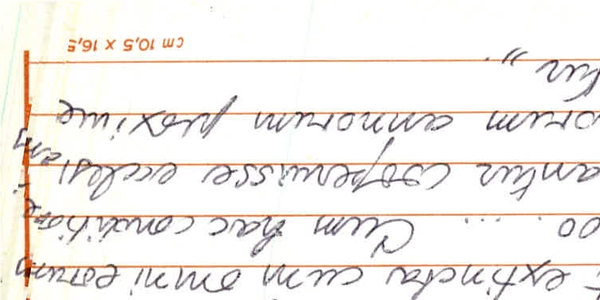 extincta cum omni eorum
00. ... Cum hac conditione
antur cooperuisse ecclesiam
orum annorum proxime
tur "
cm 10,5 x 16,5